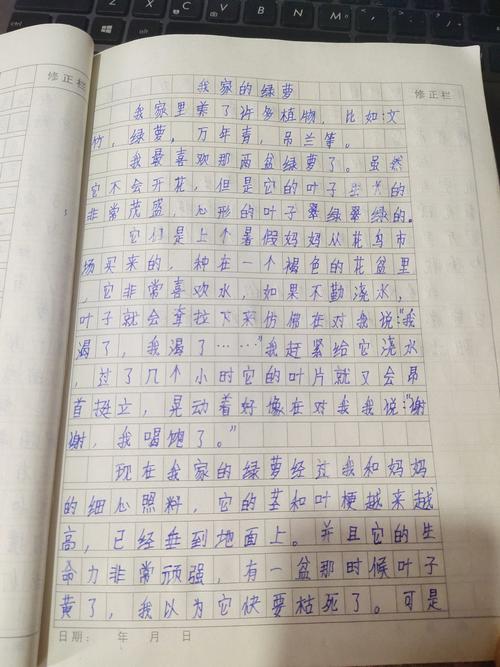 修正栏
修正栏
我家的绿萝
我家里养了许多植物，比如：文
竹，绿萝，万年青，吊兰等。
我最喜欢那两盆绿萝了。虽然
它不会开花，但是它的叶子 的
非常茂盛，心形的叶子翠绿翠绿的。
它们是上个暑假妈妈从花鸟市
场买来的，种在一个褐色的花盆里
，它非常喜欢水，如果不勤浇水，
叶子就会耷拉下来仿佛在对我说："我
渴了，我渴了……"我赶紧给它浇水
，过了几个小时它的叶片就又会昂
首挺立，晃动着好像在对我我说："谢
谢，我喝饱了。"
现在我家的绿萝经过我和妈妈
的细心照料，它的茎和叶梗越来越
高，已经垂到地面上。并且它的生
命力非常顽强，有一盆那时候叶子
黄了，我以为它快要枯死了。可是
日期： 年 月 日